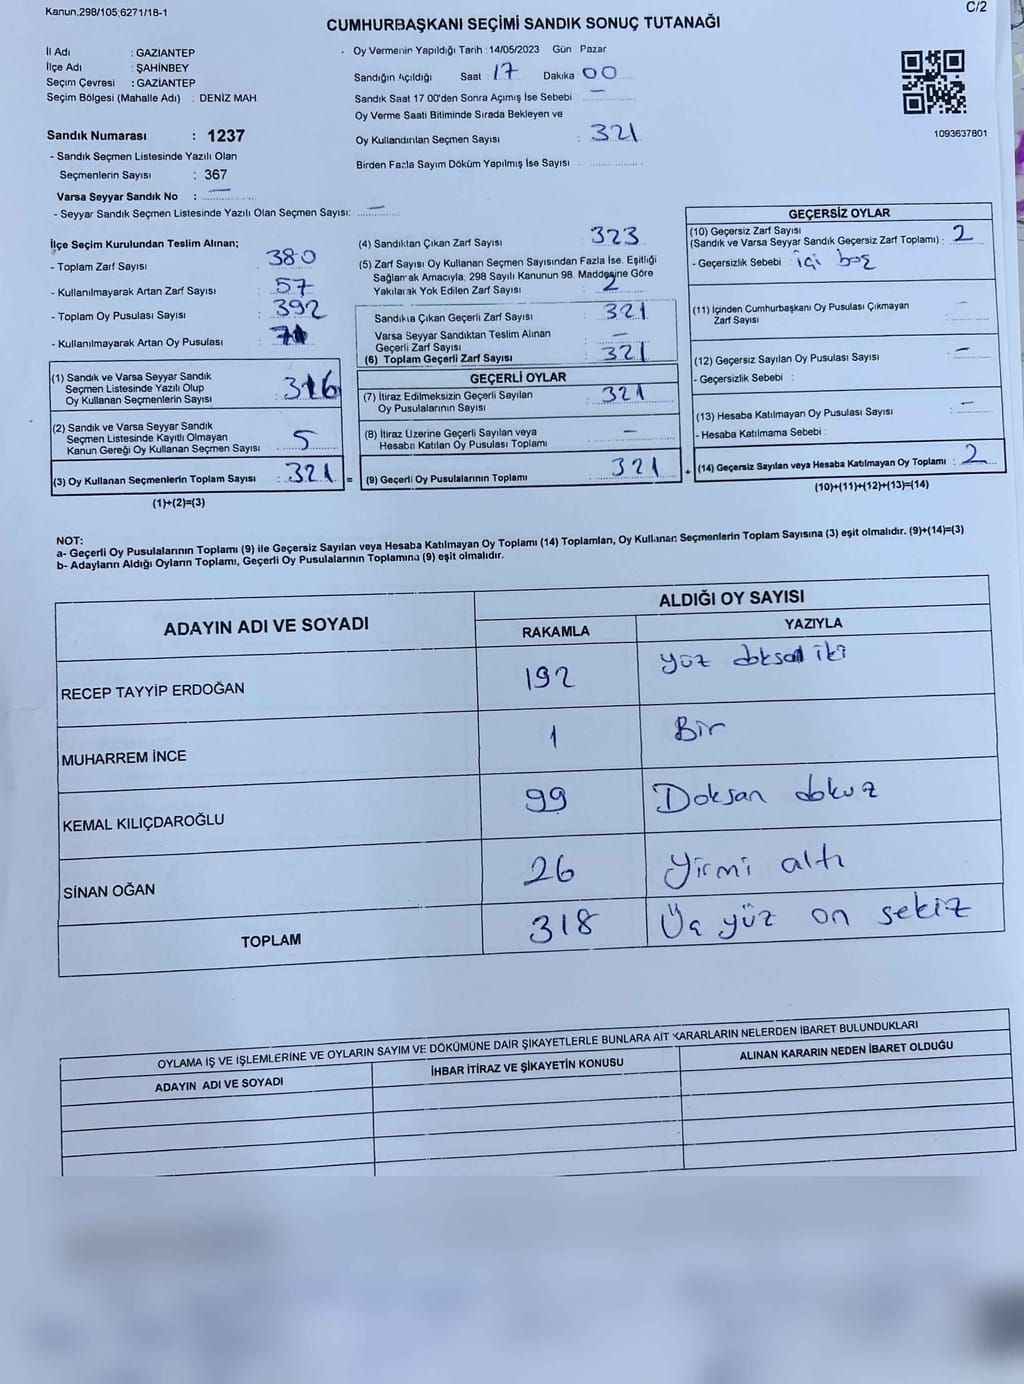 Kanun,298/105,6271/18-1
C/2
CUMHURBAŞKANI SEÇİMİ SANDIK SONUÇ TUTANAĞI
İl Adı : GAZİANTEP
İlçe Adı : ŞAHİNBEY
Seçim Çevresi : GAZİANTEP
Seçim Bölgesi (Mahalle Adı) : DENİZ MAH.
Sandık Numarası : 1237
- Sandık Seçmen Listesinde Yazılı Olan
Seçmenlerin Sayısı : 367
Varsa Seyyar Sandık No : —
- Seyyar Sandık Seçmen Listesinde Yazılı Olan Seçmen Sayısı: —
Oy Vermenin Yapıldığı Tarih : 14/05/2023 Gün Pazar
Sandığın Açıldığı Saat : 17 Dakika 00
Sandık Saat 17 00'den Sonra Açımış İse Sebebi : —
Oy Verme Saati Bitiminde Sırada Bekleyen ve
Oy Kullandırılan Seçmen Sayısı : 321
Birden Fazla Sayım Döküm Yapılmış İse Sayısı :
1093637801
İlçe Seçim Kurulundan Teslim Alınan;
- Toplam Zarf Sayısı : 380
- Kullanılmayarak Artan Zarf Sayısı : 57
- Toplam Oy Pusulası Sayısı : 392
- Kullanılmayarak Artan Oy Pusulası :
(1) Sandık ve Varsa Seyyar Sandık
Seçmen Listesinde Yazılı Olup
Oy Kullanan Seçmenlerin Sayısı : 316
(2) Sandık ve Varsa Seyyar Sandık
Seçmen Listesinde Kayıtlı Olmayan
Kanun Gereği Oy Kullanan Seçmen Sayısı : 5
(3) Oy Kullanan Seçmenlerin Toplam Sayısı : 321 =
(1)+(2)=(3)
(4) Sandıktan Çıkan Zarf Sayısı : 323
(5) Zarf Sayısı Oy Kullanan Seçmen Sayısından Fazla İse. Eşitliği
Sağlamak Amacıyla, 298 Sayılı Kanunun 98. Maddesine Göre
Yakılarak Yok Edilen Zarf Sayısı : 2
Sandıkta Çıkan Geçerli Zarf Sayısı : 321
Varsa Seyyar Sandıktan Teslim Alınan
Geçerli Zarf Sayısı : —
(6) Toplam Geçerli Zarf Sayısı : 321
GEÇERLİ OYLAR
(7) İtiraz Edilmeksizin Geçerli Sayılan
Oy Pusulalarının Sayısı : 321
(8) İtiraz Üzerine Geçerli Sayılan veya
Hesaba Katılan Oy Pusulası Toplamı : —
(9) Geçerli Oy Pusulalarının Toplamı : 321 +
GEÇERSİZ OYLAR
(10) Geçersiz Zarf Sayısı
(Sandık ve Varsa Seyyar Sandık Geçersiz Zarf Toplamı) : 2
- Geçersizlik Sebebi : içi boş
(11) İçinden Cumhurbaşkanı Oy Pusulası Çıkmayan
Zarf Sayısı : —
(12) Geçersiz Sayılan Oy Pusulası Sayısı : —
- Geçersizlik Sebebi :
(13) Hesaba Katılmayan Oy Pusulası Sayısı : —
- Hesaba Katılmama Sebebi :
(14) Geçersiz Sayılan veya Hesaba Katılmayan Oy Toplamı : 2
(10)+(11)+(12)+(13)=(14)
NOT:
a- Geçerli Oy Pusulalarının Toplamı (9) ile Geçersiz Sayılan veya Hesaba Katılmayan Oy Toplamı (14) Toplamları, Oy Kullanan Seçmenlerin Toplam Sayısına (3) eşit olmalıdır. (9)+(14)=(3)
b- Adayların Aldığı Oyların Toplamı, Geçerli Oy Pusulalarının Toplamına (9) eşit olmalıdır.
ADAYIN ADI VE SOYADI
ALDIĞI OY SAYISI
RAKAMLA YAZIYLA
RECEP TAYYİP ERDOĞAN 192 yüz doksan iki
MUHARREM İNCE 1 Bir
KEMAL KILIÇDAROĞLU 99 Doksan dokuz
SİNAN OĞAN 26 Yirmi altı
TOPLAM 318 Üç yüz on sekiz
OYLAMA İŞ VE İŞLEMLERİNE VE OYLARIN SAYIM VE DÖKÜMÜNE DAİR ŞİKAYETLERLE BUNLARA AİT KARARLARIN NELERDEN İBARET BULUNDUKLARI
ADAYIN ADI VE SOYADI İHBAR İTİRAZ VE ŞİKAYETİN KONUSU ALINAN KARARIN NEDEN İBARET OLDUĞU